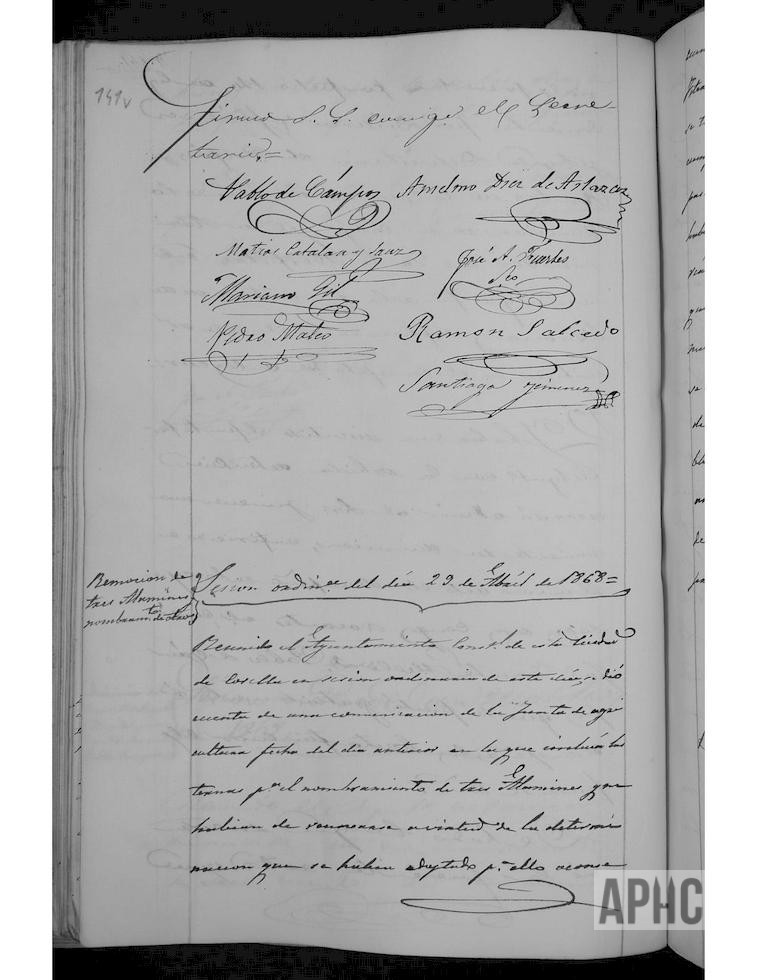 141v
firmó S. S. conmigo el Secre-
tario,=
Pablo de Campos Anselmo Diez de Artazcoz
Matias Catalan y Sanz José A. Fuertes
Sro
Mariano Gil
Pedro Mateo Ramon Salcedo
Santiago Jimenez
Remocion de
tres Alamines y
nombramto. de otros
Sesion ordin.ª del dia 29 de Abril de 1868=
Reunido el Ayuntamiento Const.l de esta Ciudad
de Corella en sesion ordinaria de este dia, se dió
cuenta de una comunicacion de la Junta de agri
cultura fecha del dia anterior en la que incluia las
ternas p.ª el nombramiento de tres Alamines que
habian de renovarse a virtud de la determi
nacion que se habia adoptado p.ª ello
APHC